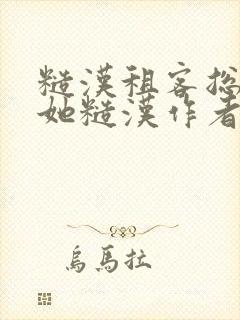 糙漢租客總
她糙漢作者
烏馬拉